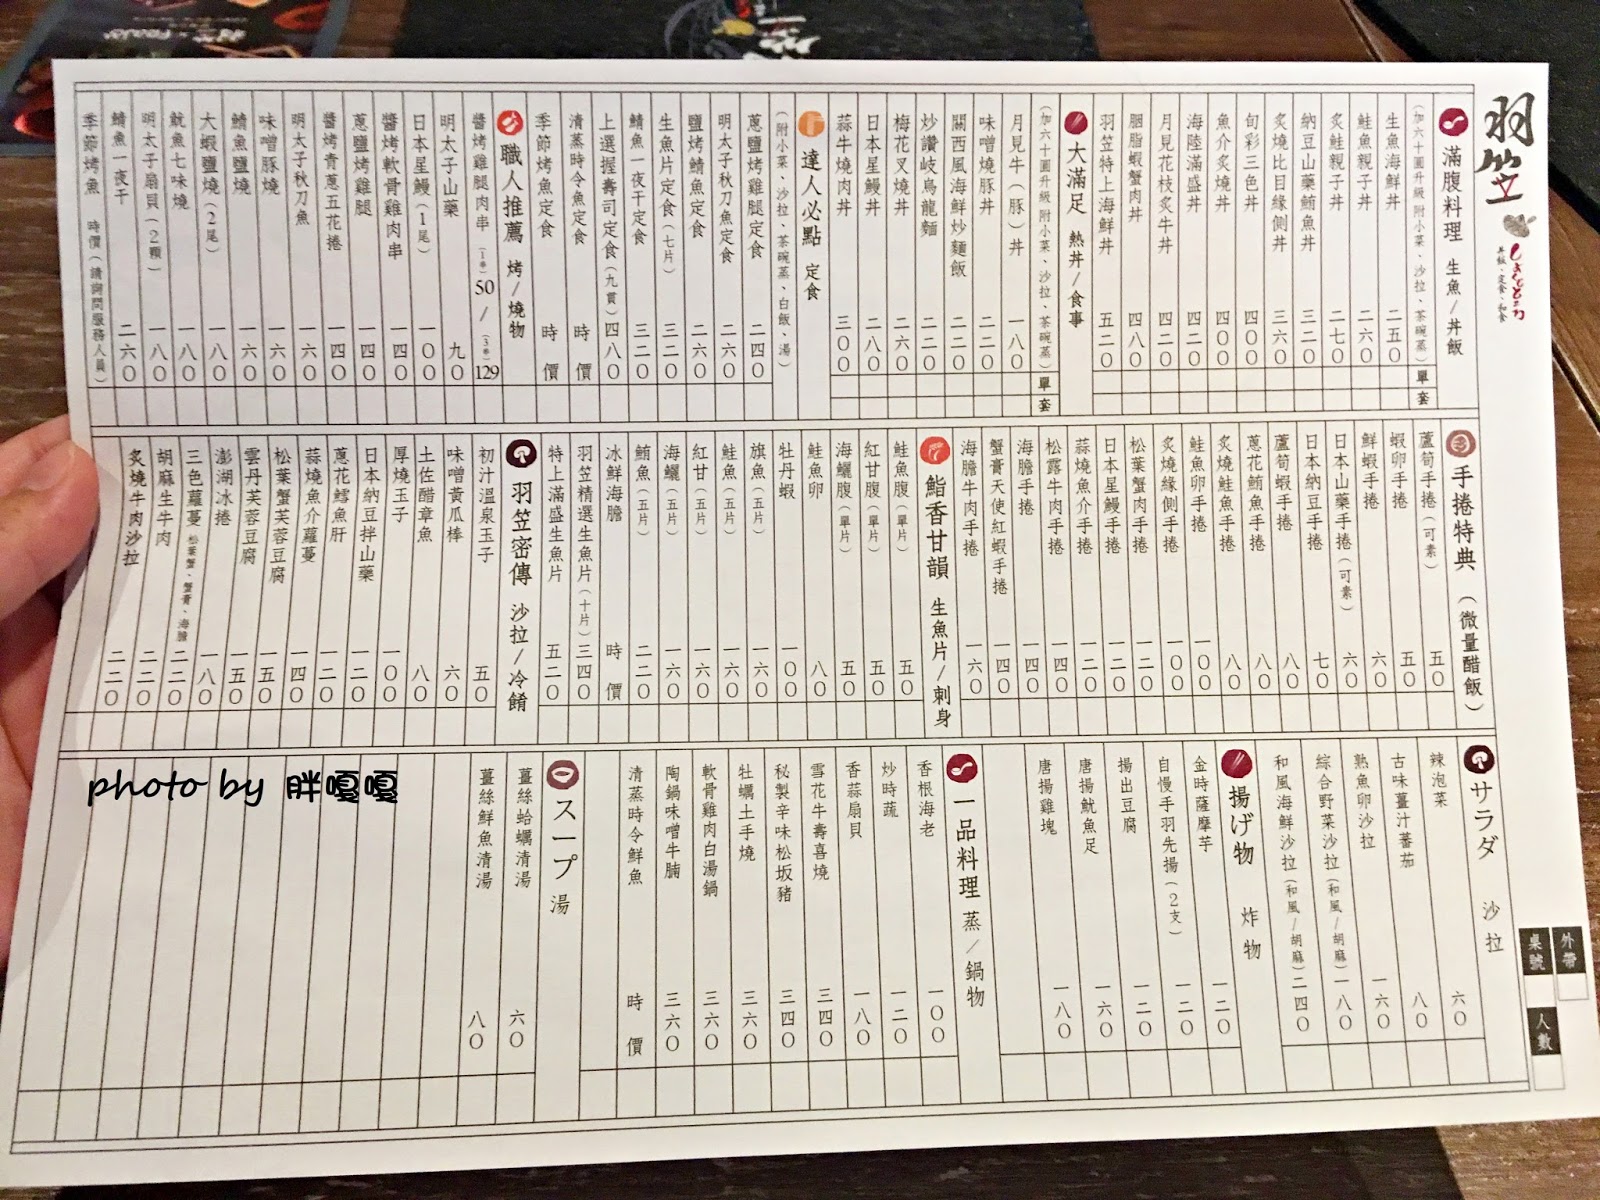 羽笠
丼飯、定食、和食
外帶
桌號
人數
滿腹料理 生魚/丼飯
(加六十圓升級 附小菜、沙拉、茶碗蒸) 單 套
生魚海鮮丼 二五〇
鮭魚親子丼 二六〇
炙鮭親子丼 二七〇
納豆山藥鮪魚丼 三二〇
炙燒比目緣側丼 三六〇
旬彩三色丼 四〇〇
魚介炙燒丼 四〇〇
海陸滿盛丼 四二〇
月見花枝炙牛丼 四二〇
胭脂蝦蟹肉丼 四八〇
羽笠特上海鮮丼 五二〇
大滿足 熱丼/食事
(加六十圓升級 附小菜、沙拉、茶碗蒸) 單 套
月見牛(豚)丼 一八〇
味噌燒豚丼 二二〇
關西風海鮮炒麵飯 二二〇
炒讚岐烏龍麵 二二〇
梅花叉燒丼 二六〇
日本星鰻丼 二八〇
蒜牛燒肉丼 三〇〇
達人必點 定食
(附小菜、沙拉、茶碗蒸、白飯、湯)
蔥鹽烤雞腿定食 二四〇
明太子秋刀魚定食 二六〇
鹽烤鯖魚定食 二六〇
生魚片定食(七片) 三二〇
鯖魚一夜干定食 三二〇
上選握壽司定食(九貫) 四八〇
清蒸時令魚定食 時價
季節烤魚定食 時價
職人推薦 烤/燒物
醬烤雞腿肉串(1串)50/(3串)129
明太子山藥 九〇
日本星鰻(1尾) 一〇〇
醬烤軟骨雞肉串 一四〇
蔥鹽烤雞腿 一四〇
醬烤青蔥五花捲 一四〇
明太子秋刀魚 一六〇
味噌豚燒 一六〇
鯖魚鹽燒 一六〇
大蝦鹽燒(2尾) 一八〇
魷魚七味燒 一八〇
明太子扇貝(2顆) 一八〇
鯖魚一夜干 二六〇
季節烤魚 時價(請詢問服務人員)
手捲特典(微量醋飯)
蘆筍手捲(可素) 五〇
蝦卵手捲 五〇
鮮蝦手捲 六〇
日本山藥手捲(可素) 六〇
日本納豆手捲 七〇
蘆筍蝦手捲 八〇
蔥花鮪魚手捲 八〇
炙燒鮭魚手捲 八〇
鮭魚卵手捲 一〇〇
炙燒緣側手捲 一〇〇
松葉蟹肉手捲 一二〇
日本星鰻手捲 一二〇
蒜燒魚介手捲 一二〇
松露牛肉手捲 一四〇
海膽手捲 一四〇
蟹膏天使紅蝦手捲 一四〇
海膽牛肉手捲 一六〇
鮨香甘韻 生魚片/刺身
鮭魚腹(單片) 五〇
紅甘腹(單片) 五〇
海鱺腹(單片) 五〇
鮭魚卵 八〇
牡丹蝦 一〇〇
旗魚(五片) 一六〇
鮭魚(五片) 一六〇
紅甘(五片) 一六〇
海鱺(五片) 一六〇
鮪魚(五片) 二二〇
冰鮮海膽 時價
羽笠精選生魚片(十片) 三四〇
特上滿盛生魚片 五二〇
羽笠密傳 沙拉/冷餚
初汁溫泉玉子 五〇
味噌黃瓜棒 六〇
土佐醋章魚 八〇
厚燒玉子 一〇〇
日本納豆拌山藥 一二〇
蔥花鱈魚肝 一二〇
蒜燒魚介蘿蔓 一四〇
松葉蟹芙蓉豆腐 一五〇
雲丹芙蓉豆腐 一五〇
澎湖冰捲 一八〇
三色蘿蔓 松葉蟹、蟹膏、海膽 二二〇
胡麻生牛肉 二二〇
炙燒牛肉沙拉 二二〇
サラダ 沙拉
辣泡菜 六〇
古味薑汁蕃茄 八〇
熟魚卵沙拉 一六〇
綜合野菜沙拉(和風/胡麻) 一八〇
和風海鮮沙拉(和風/胡麻) 二四〇
揚げ物 炸物
金時薩摩芋 一二〇
自慢手羽先揚(2支) 一二〇
揚出豆腐 一二〇
唐揚魷魚足 一六〇
唐揚雞塊 一八〇
一品料理 蒸/鍋物
香根海老 一〇〇
炒時蔬 一二〇
香蒜扇貝 一八〇
雪花牛壽喜燒 三四〇
秘製辛味松坂豬 三四〇
牡蠣土手燒 三六〇
軟骨雞肉白湯鍋 三六〇
陶鍋味噌牛腩 三六〇
清蒸時令鮮魚 時價
スープ 湯
薑絲蛤蠣清湯 六〇
薑絲鮮魚清湯 八〇
photo by 胖嘎嘎